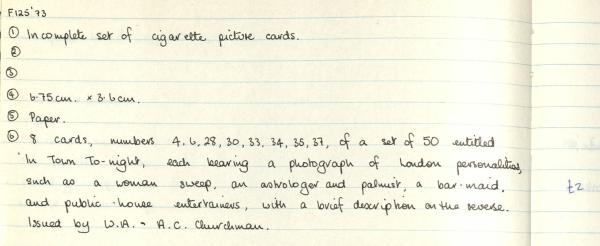 F125'73
① Incomplete set of cigarette picture cards.
②
③
④ 6.75cm. × 3.6cm.
⑤ Paper.
⑥ 8 cards, numbers 4, 6, 28, 30, 33, 34, 35, 37, of a set of 50 entitled
In Town To-night, each bearing a photograph of London personalities,
such as a woman sweep, an astrologer and palmist, a bar-maid,
and public-house entertainers, with a brief description on the reverse.
Issued by W.A. - A.C. Churchman.
£2